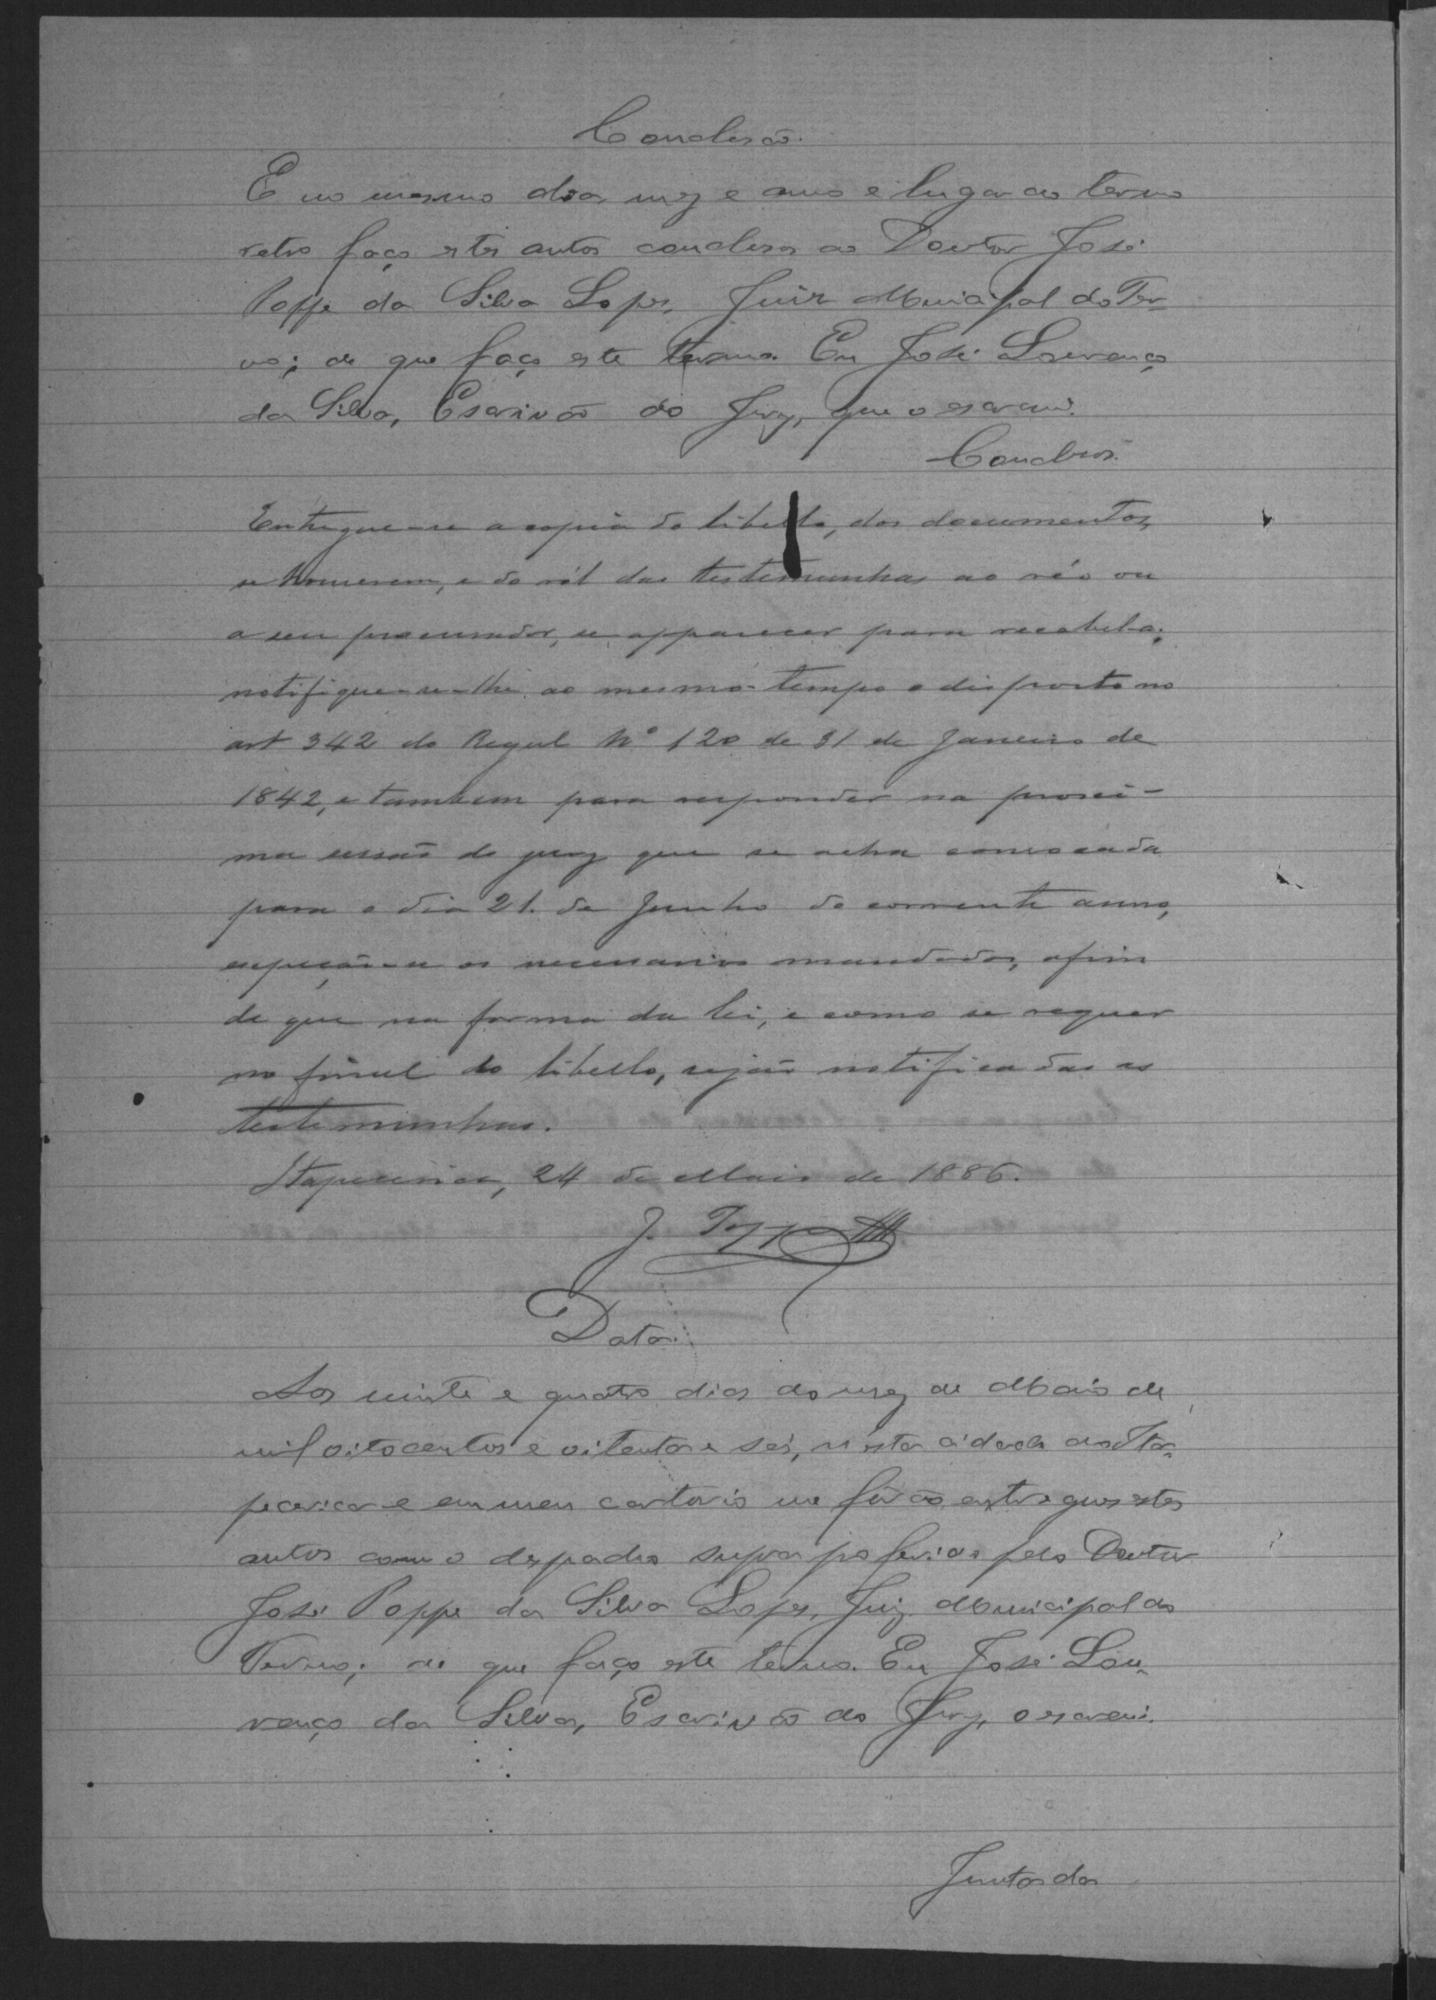 Conclusão.
E no mesmo dia, mez e anno e lugar do termo
retro faço estes autos conclusos ao Doutor José
Poppe da Silva Lopes, Juiz Municipal do Ter-
mo; do que faço este termo. Eu José Lourenço
da Silva, Escrivão do Jury, que o escrevi.
Conclusos.
Entregue-se a copia do libello, dos documentos,
se houverem, e do ról das testemunhas ao réo ou
a seu procurador, se apparecer para recebel-a;
notifique-se-lhe ao mesmo tempo o disposto no
art 342 do Regul Nº 120 de 31 de Janeiro de
1842, e tambem para responder na proxi-
ma sessão do jury que se acha convocada
para o dia 21 de Junho do corrente anno,
expeção-se os necessarios mandados, afim
de que na forma da lei, e como se requer
no final do libello, sejão notificadas as
testemunhas.
Itapecerica, 24 de Maio de 1886.
J. Poppe
Data.
Aos vinte e quatro dias do mez de Maio de
mil oitocentos e oitenta e seis, n'esta cidade de Ita-
pecerica e em meu cartorio me fôrão entregues estes
autos com o despacho supra proferido pelo Doutor
José Poppe da Silva Lopes, Juiz Municipal do
Termo; do que faço este termo. Eu José Lou-
renço da Silva, Escrivão do Jury, o escrevi.
Juntada